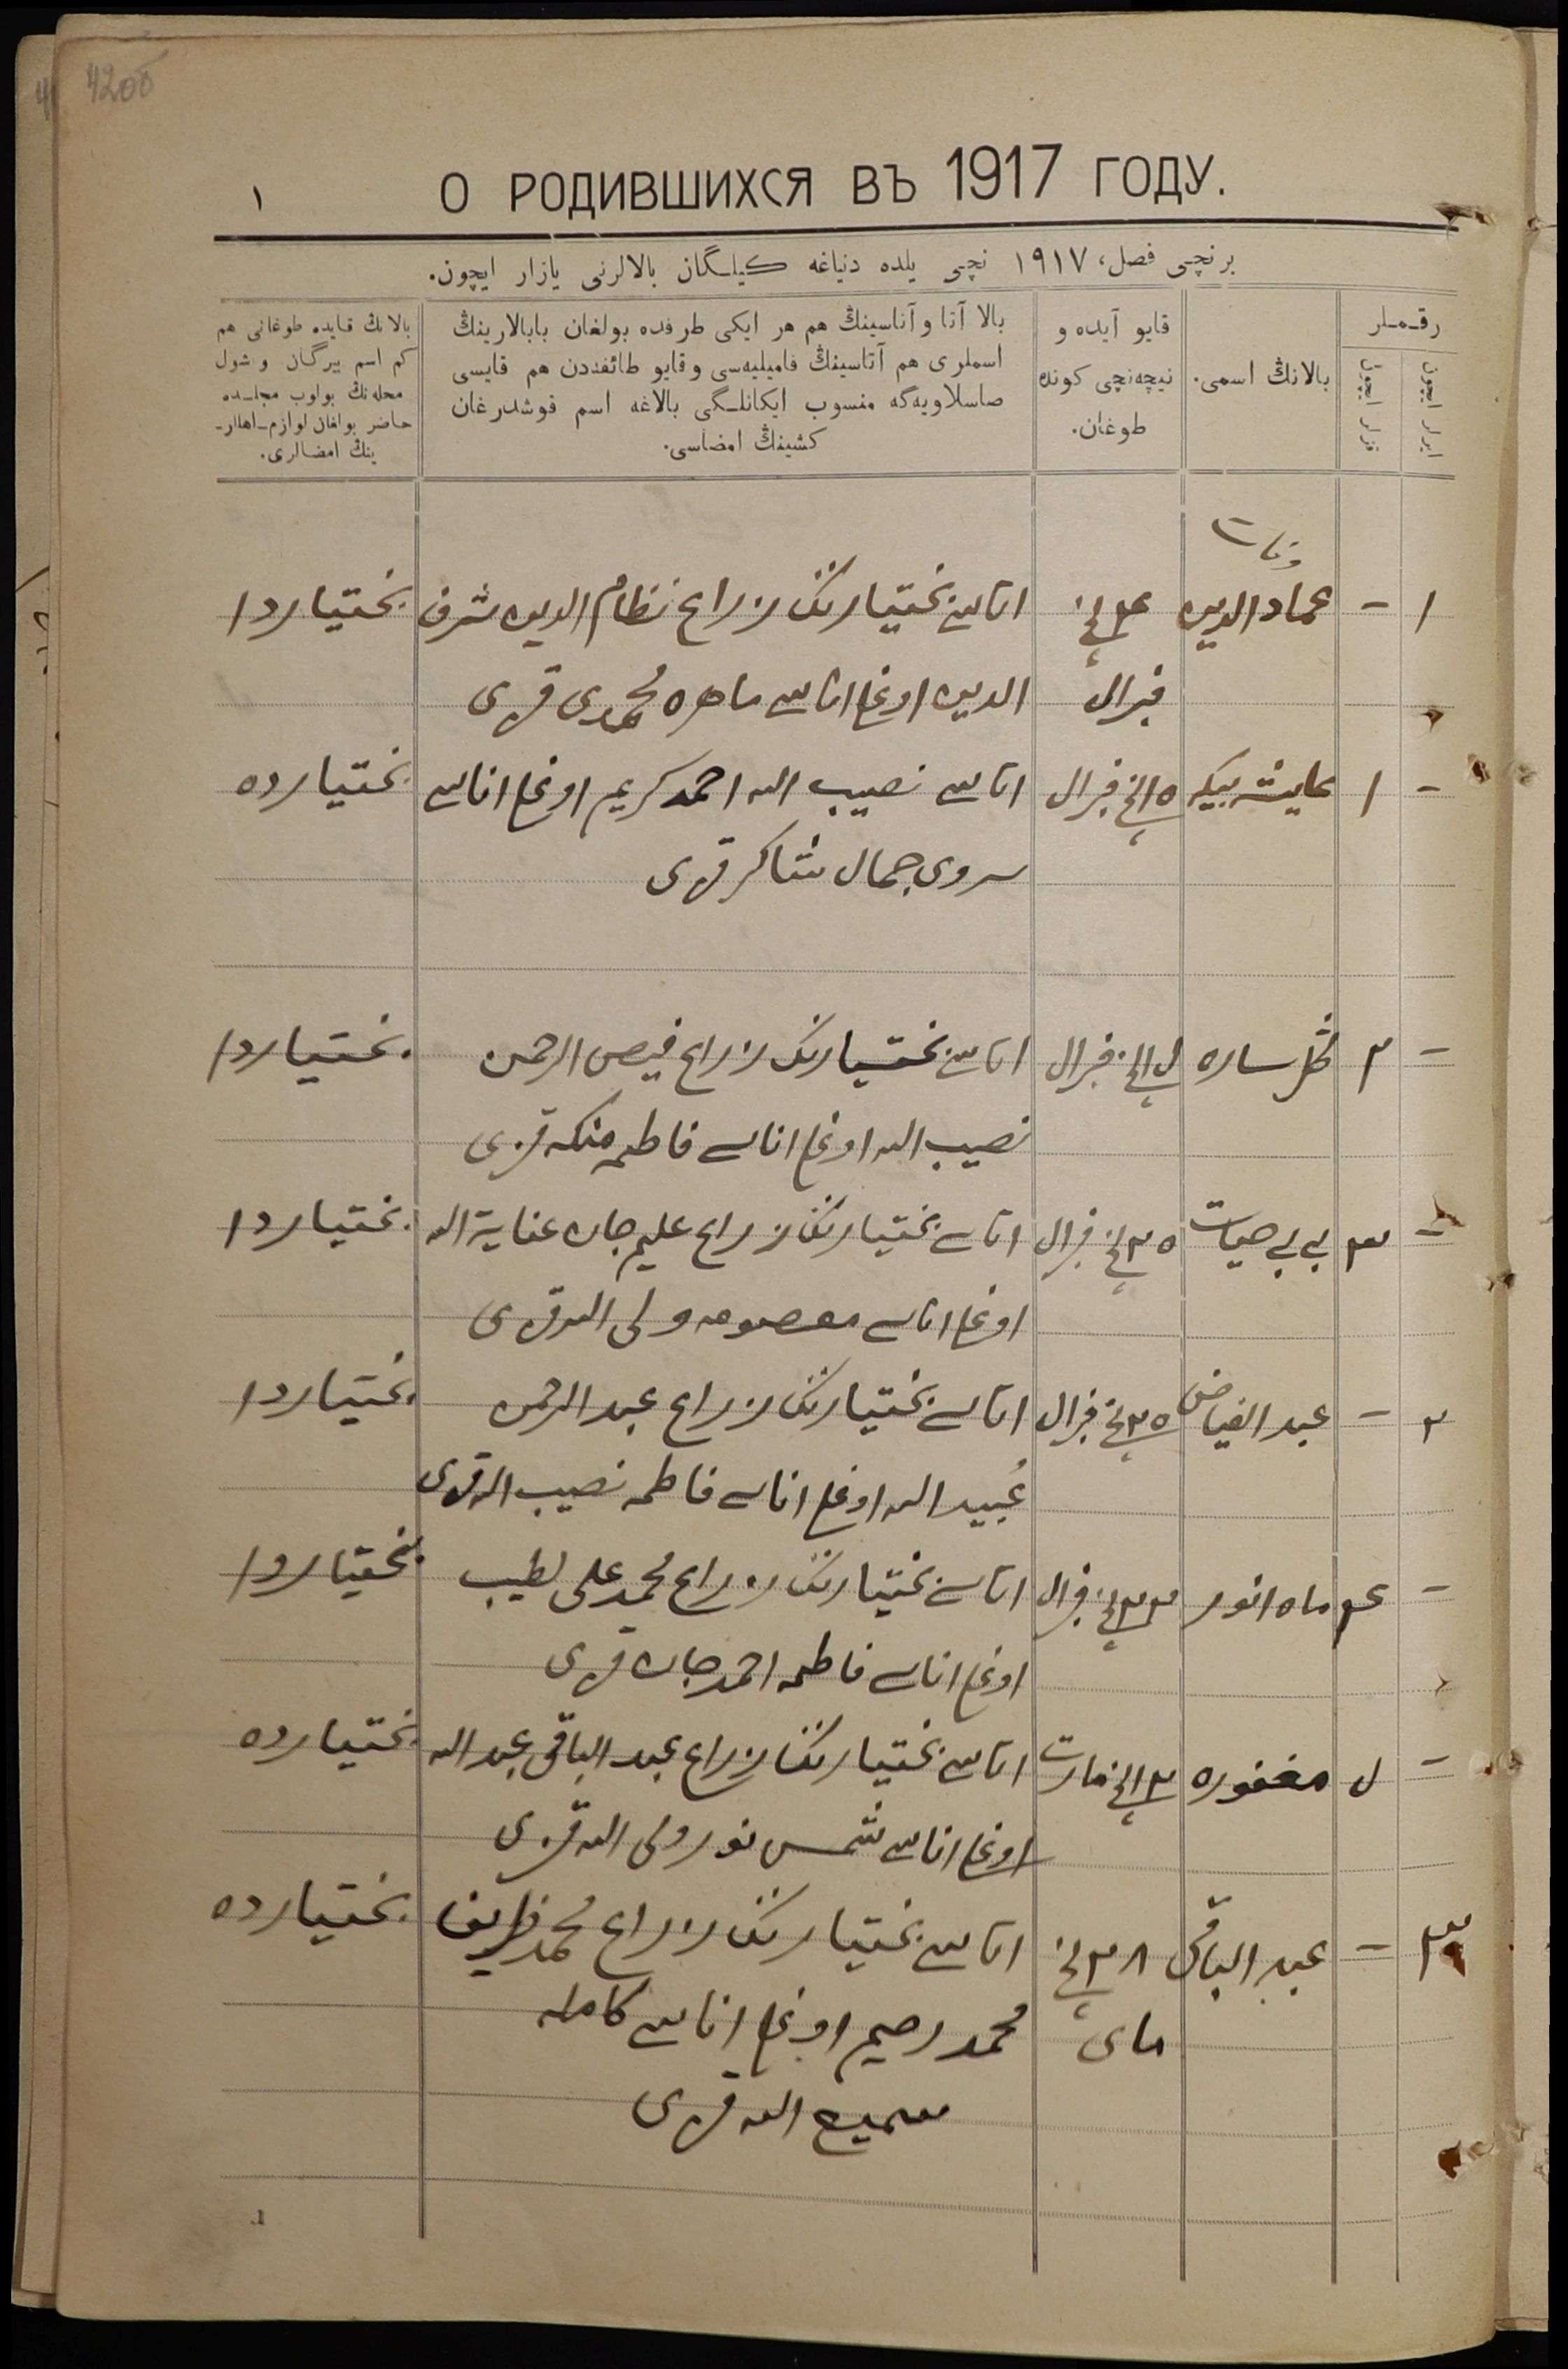 42об
О РОДИВШИХСЯ ВЪ 1917 ГОДУ.
١
برنچی فصل، ١٩١٧ نچی یلده دنیاغه کیلگان بالالرنی یازار ایچون.
رقملر
ایرلر ایچون
قزلر ایچون
بالانڭ اسمی.
قایو آیده و
نیچه‌نچی کونده
طوغان.
بالا آتا و آناسینڭ هم هر ایکی طرفده بولغان بابالارینڭ
اسملری هم آتاسینڭ فامیلیه‌سی و قایو طائفه‌دن هم قایسی
صاسلاویه‌گه منسوب ایکانلگی بالاغه اسم قوشدرغان
کشینڭ امضاسی.
بالانڭ قایده طوغانی هم
کم اسم بیرگان و شول
محله‌نڭ بولوب مجلسده
حاضر بولغان لوازم اهللر-
ینڭ امضالری.
وفات
١ - عمادالدین ٤ نچی اتاسی بختیارنڭ زراع نظام الدین شرف بختیاردا
فبرال الدین اوغلی اناسی ماهره محمدی قزی
- ١ عایشه بیکه ١٥ نچی فبرال اتاسی نصیب الله احمدکریم اوغلی اناسی بختیارده
سروی جمال شاکر قزی
- ٢ ساره فبرال اتاسی بختیارنڭ زراع فیض الرحمن بختیاردا
نصیب الله اوغلی اناسی فاطمه قزی
- ٣ بی بی حیات ٢٥ نچی فبرال اتاسی بختیارنڭ زراع علیم جان عنایة الله بختیاردا
اوغلی اناسی معصومه ولی الله قزی
٢ - عبد الفیاض ٢٥ نچی فبرال اتاسی بختیارنڭ زراع عبد الرحمن بختیاردا
عُبید الله اوغلی اناسی فاطمه نصیب الله قزی
- ٤ ماه انور ٢٣ نچی فبرال اتاسی بختیارنڭ زراع محمد علی لطیب بختیاردا
اوغلی اناسی فاطمه احمدجان قزی
- ٥ مغفوره ١٢ نچی مارت اتاسی بختیارنڭ زراع عبد الباقی عبد الله بختیارده
اوغلی اناسی شمس نور ولی الله قزی
٣ - عبد الباقی ٢٨ نچی اتاسی بختیارنڭ زراع محمد ظریف بختیارده
مای محمد رحیم اوغلی اناسی کامله
سمیع الله قزی
1.